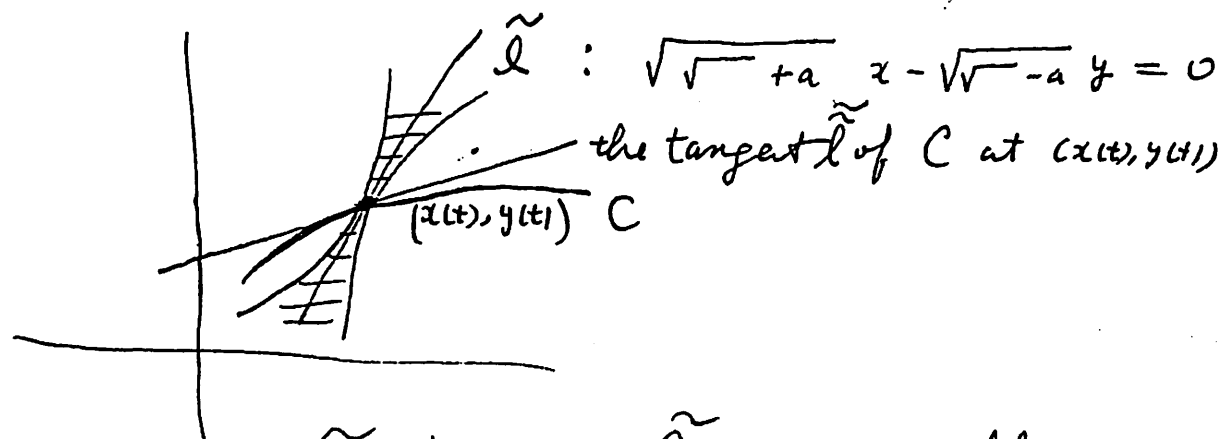 l̃ : √(√‾ +a) x - √(√‾ -a) y = 0
the tangent l̃̃ of C at (x(t), y(t))
(x(t), y(t)) C